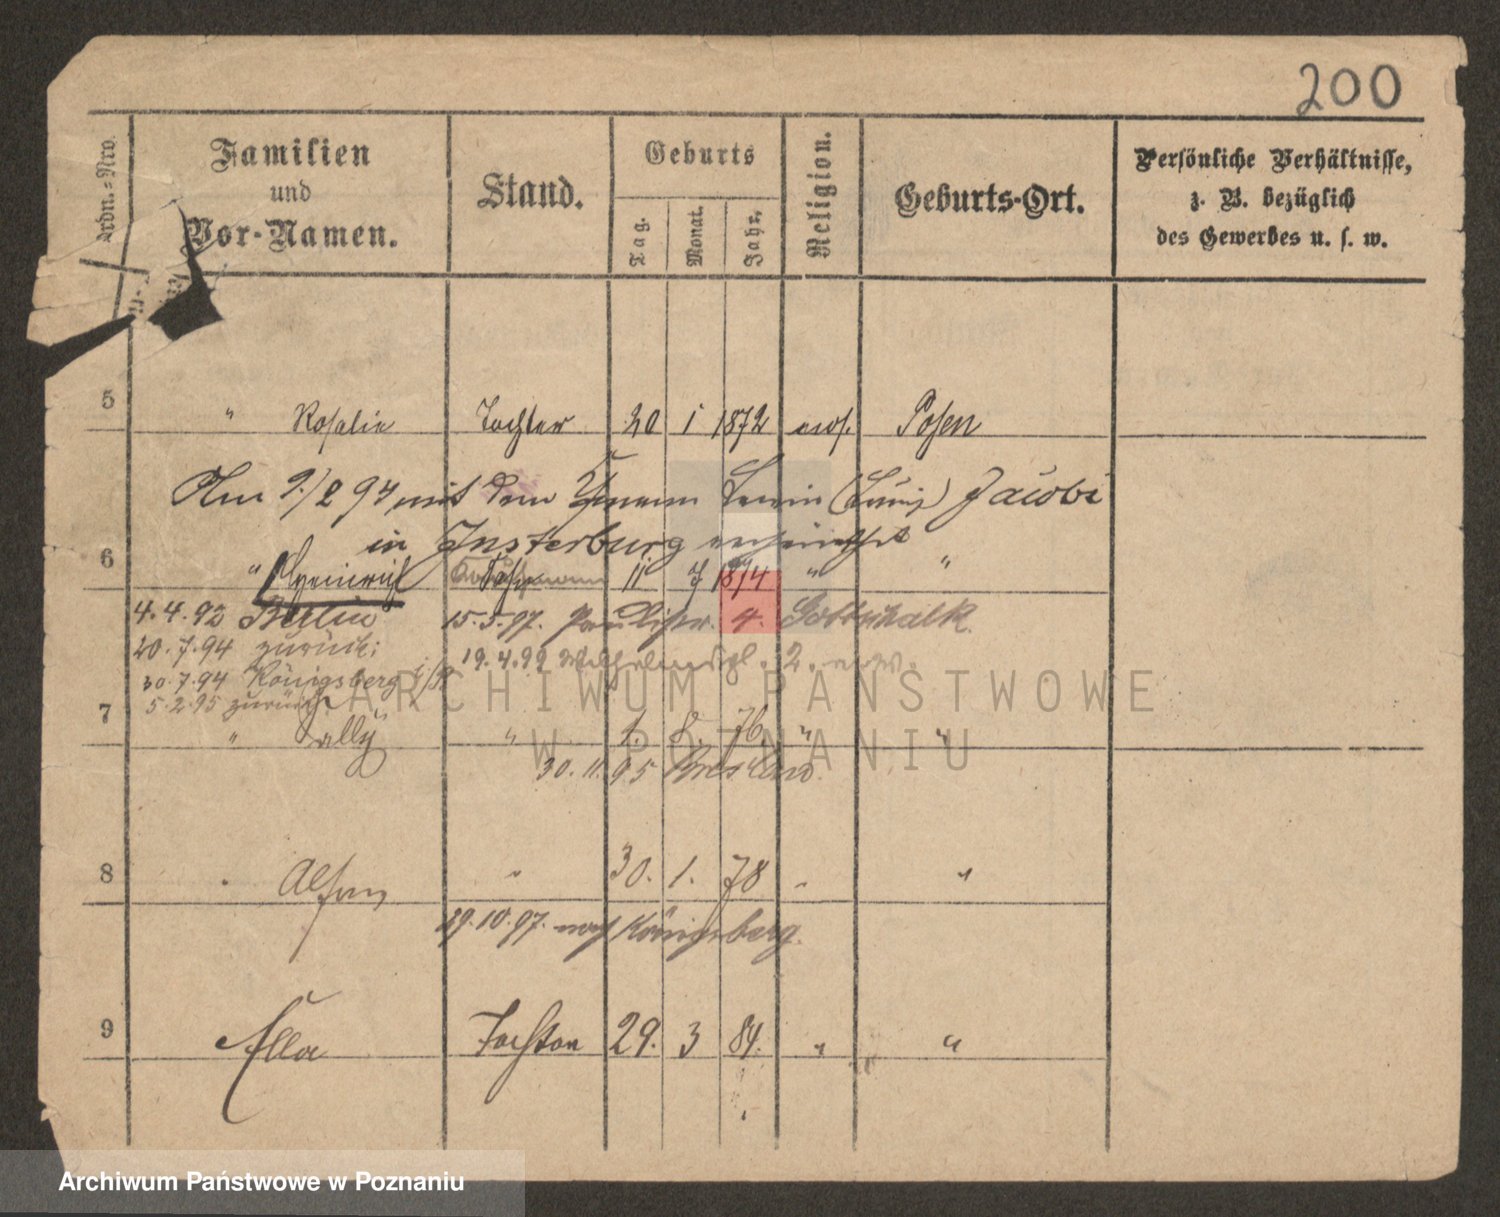 200
Ordn.-Nro.
Familien
und
Vor-Namen.
Stand.
Geburts
Tag.
Monat.
Jahr.
Religion.
Geburts-Ort.
Persönliche Verhältnisse,
z. B. bezüglich
des Gewerbes u. s. w.
5 " Rosalie Tochter 20 1 1872 mos. Posen
Am 9./2 94 mit dem Lewin (Louis) Jacobi
in Insterburg verheirathet
6 " Heinrich Sohn 11 7 1874 " "
4.4.92 Berlin 15.5.97. Paulistr. 4. Gottschalk.
20.7.94 zurück; 19.4.99 Wilhelmspl. 2.
30.7.94 Königsberg i/P
5.2.95 zurück
7 " Sally " 1. 8. 76. " "
30.11.95 Breslau.
8 " Alfons " 30. 1. 78 " "
29.10.97. nach Königsberg.
9 Ella Tochter 29. 3 84. " "
ARCHIWUM PAŃSTWOWE
W POZNANIU
Archiwum Państwowe w Poznaniu